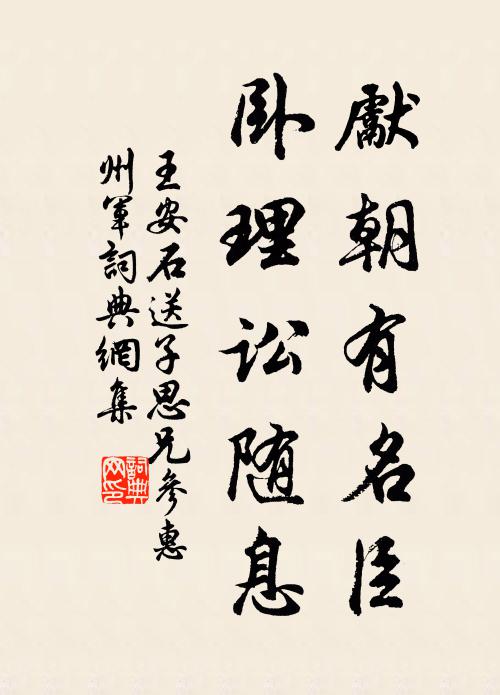 獻朝有名臣
卧理訟随息
王安石送子思兄參惠
州軍詞典網集
詞典
网印